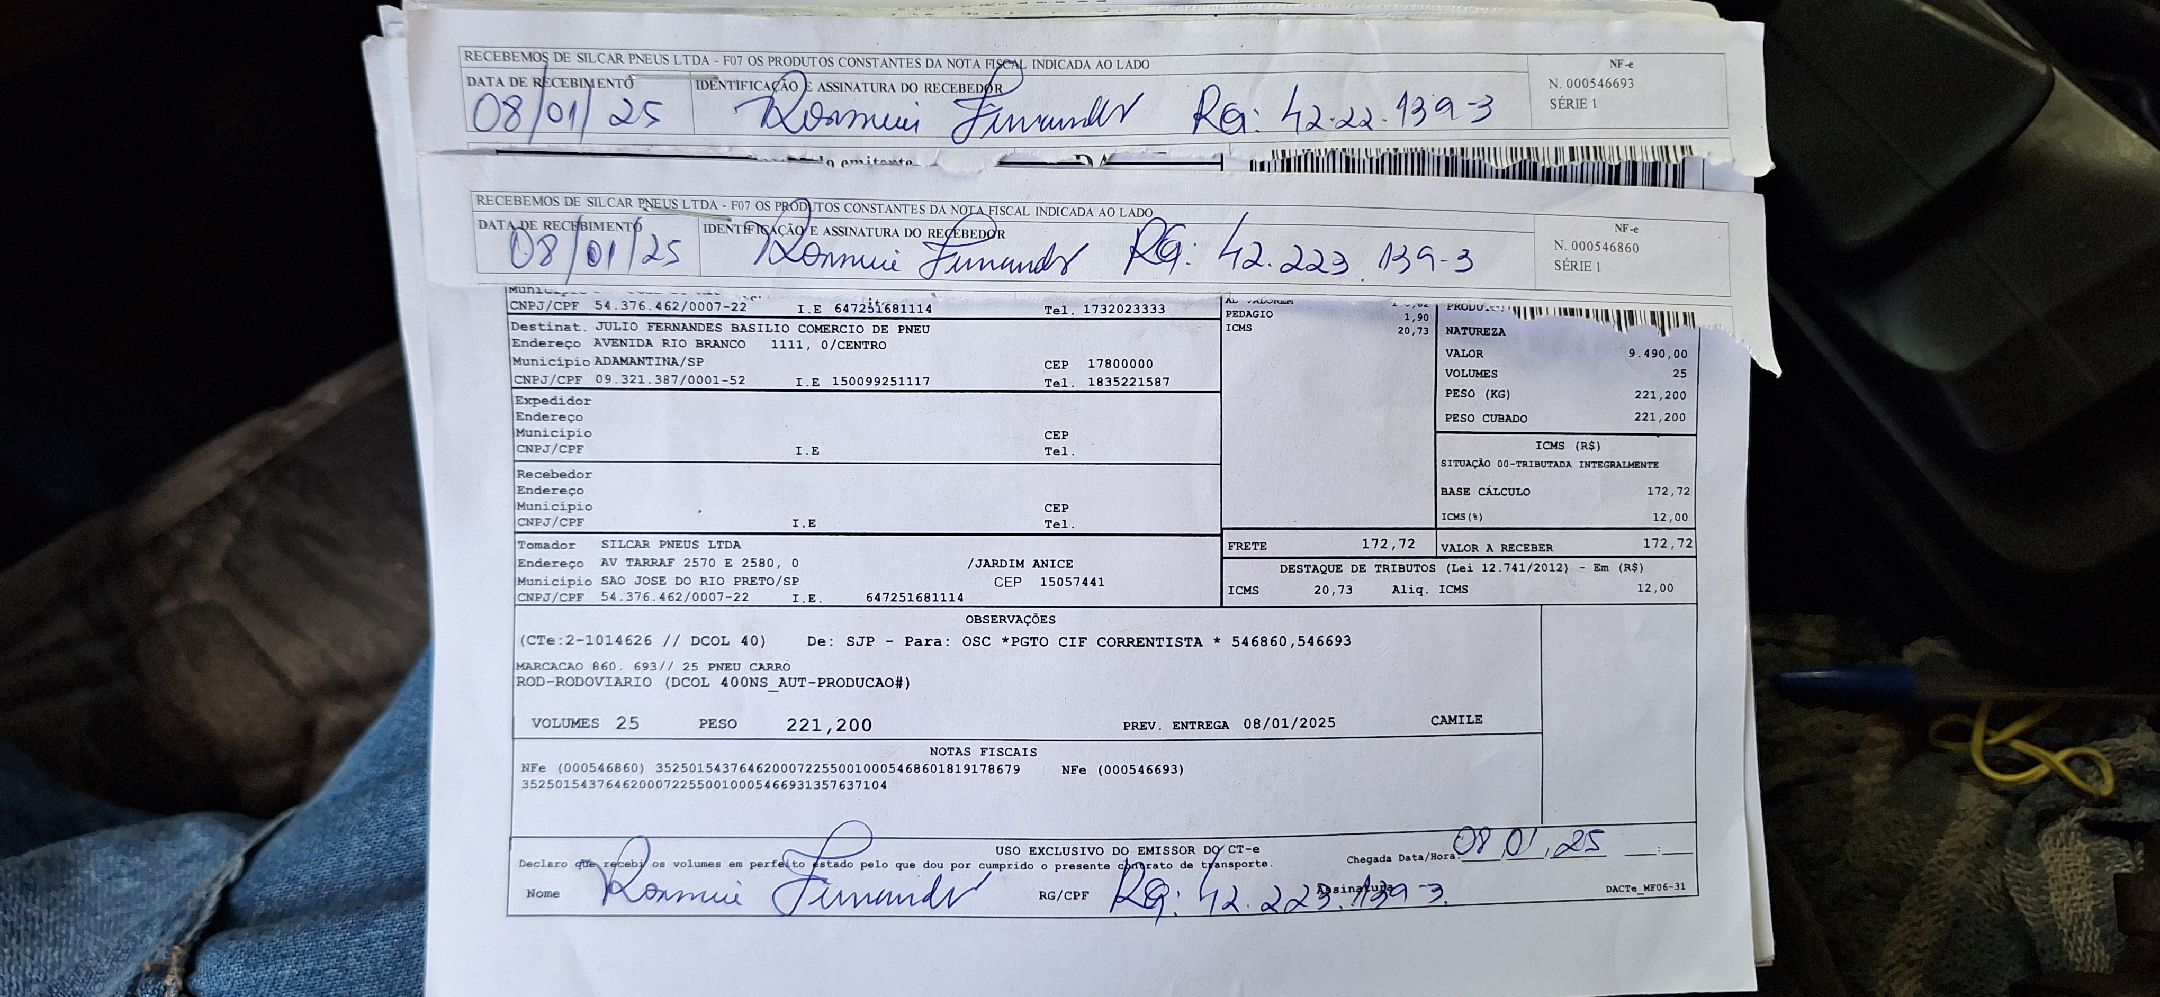 RECEBEMOS DE SILCAR PNEUS LTDA - F07 OS PRODUTOS CONSTANTES DA NOTA FISCAL INDICADA AO LADO
NF-e
DATA DE RECEBIMENTO
IDENTIFICAÇÃO E ASSINATURA DO RECEBEDOR
N. 000546693
SÉRIE 1
08/01/25
RG: 42.22.139-3
RECEBEMOS DE SILCAR PNEUS LTDA - F07 OS PRODUTOS CONSTANTES DA NOTA FISCAL INDICADA AO LADO
NF-e
DATA DE RECEBIMENTO
IDENTIFICAÇÃO E ASSINATURA DO RECEBEDOR
N. 000546860
SÉRIE 1
08/01/25
RG: 42.223.139-3
CNPJ/CPF 54.376.462/0007-22 I.E 647251681114 Tel. 1732023333
Destinat. JULIO FERNANDES BASILIO COMERCIO DE PNEU
Endereço AVENIDA RIO BRANCO 1111, 0/CENTRO
Município ADAMANTINA/SP CEP 17800000
CNPJ/CPF 09.321.387/0001-52 I.E 150099251117 Tel. 1835221587
Expedidor
Endereço
Município CEP
CNPJ/CPF I.E Tel.
Recebedor
Endereço
Município CEP
CNPJ/CPF I.E Tel.
Tomador SILCAR PNEUS LTDA
Endereço AV TARRAF 2570 E 2580, 0 /JARDIM ANICE
Município SAO JOSE DO RIO PRETO/SP CEP 15057441
CNPJ/CPF 54.376.462/0007-22 I.E. 647251681114
PEDAGIO 1,90
ICMS 20,73
NATUREZA
VALOR 9.490,00
VOLUMES 25
PESO (KG) 221,200
PESO CUBADO 221,200
ICMS (R$)
SITUAÇÃO 00-TRIBUTADA INTEGRALMENTE
BASE CÁLCULO 172,72
ICMS(%) 12,00
FRETE 172,72
VALOR A RECEBER 172,72
DESTAQUE DE TRIBUTOS (Lei 12.741/2012) - Em (R$)
ICMS 20,73 Aliq. ICMS 12,00
OBSERVAÇÕES
(CTe:2-1014626 // DCOL 40) De: SJP - Para: OSC *PGTO CIF CORRENTISTA * 546860,546693
MARCACAO 860. 693// 25 PNEU CARRO
ROD-RODOVIARIO (DCOL 400NS_AUT-PRODUCAO#)
VOLUMES 25 PESO 221,200 PREV. ENTREGA 08/01/2025 CAMILE
NOTAS FISCAIS
NFe (000546860) 35250154376462000722550010005468601819178679 NFe (000546693)
35250154376462000722550010005466931357637104
USO EXCLUSIVO DO EMISSOR DO CT-e
Declaro que recebi os volumes em perfeito estado pelo que dou por cumprido o presente contrato de transporte.
Chegada Data/Hora: 08 01, 25
Nome RG/CPF RG: 42.223.139-3 Assinatura
DACTe_MF06-31